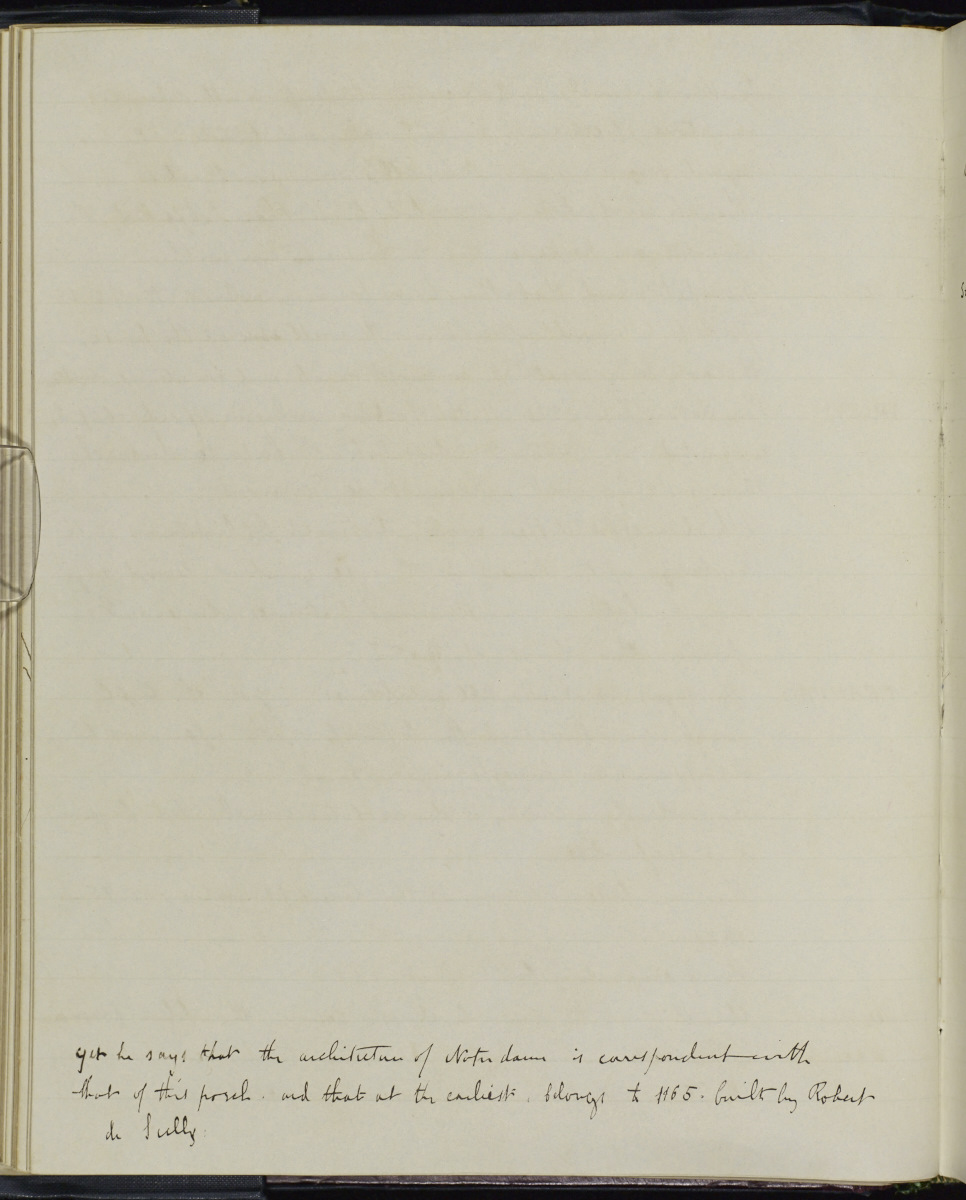 yet he says that the architecture of Notre dame is correspondent with
that of this porch. and that at the earliest, belongs to 1165. built by Robert
de Sully.